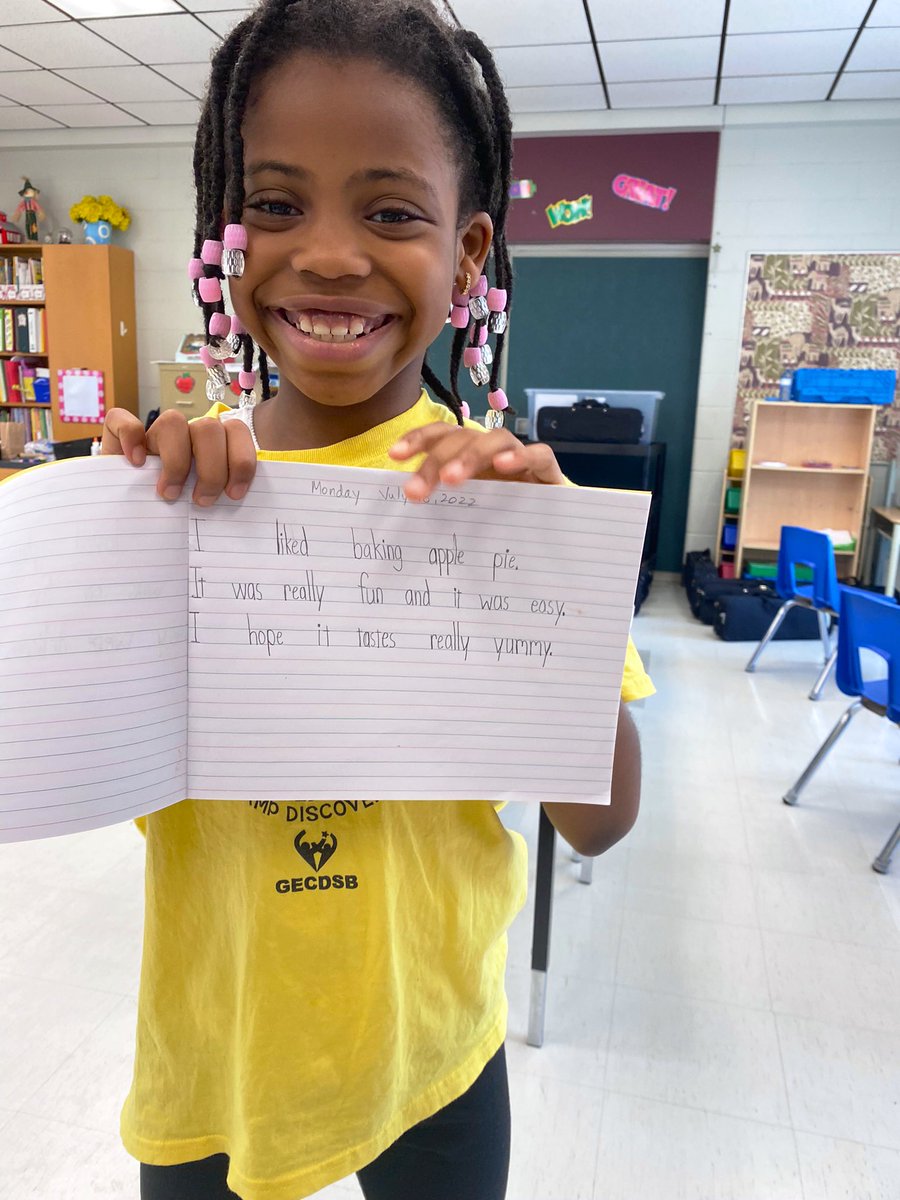 WOW!
GREAT!
Monday July 18, 2022
I liked baking apple pie.
It was really fun and it was easy.
I hope it tastes really yummy.
DISCOVE
GECDSB